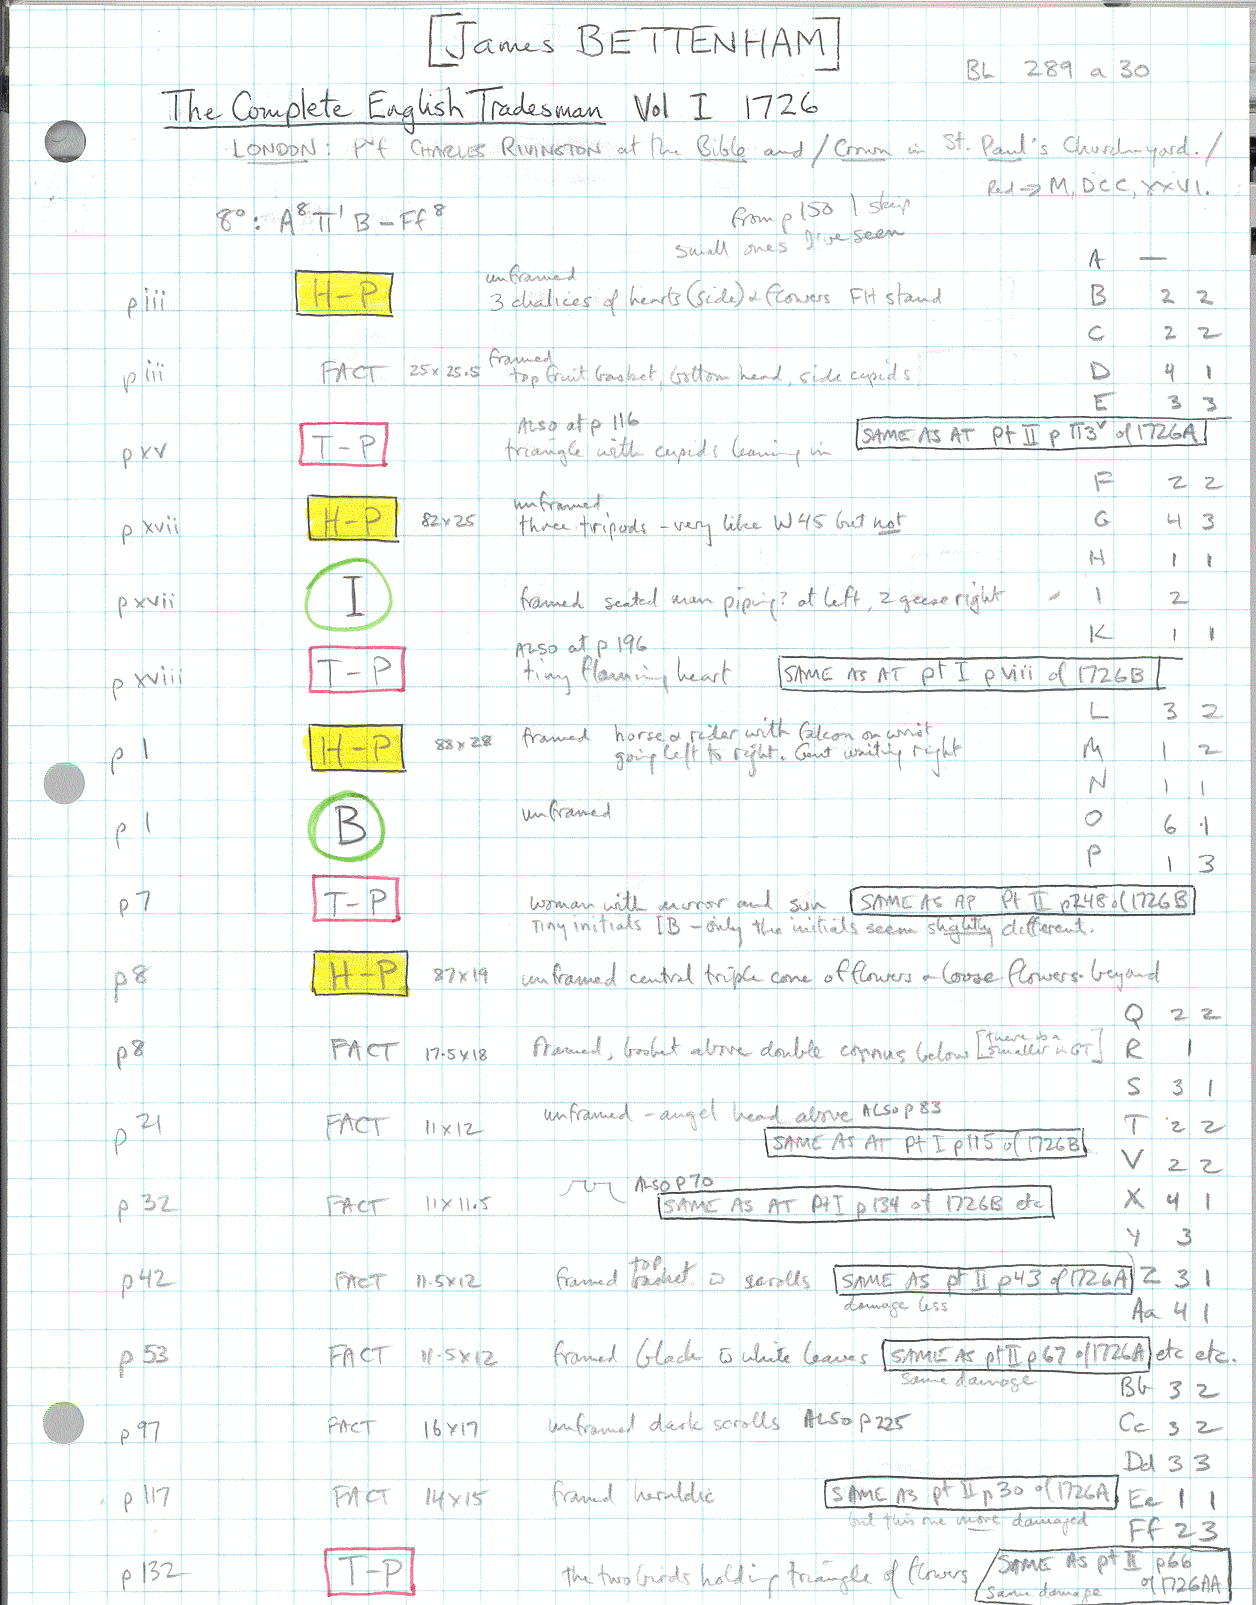 [James BETTENHAM]
BL 289 a 30
The Complete English Tradesman Vol I 1726
LONDON: Pr f CHARLES RIVINGTON at the Bible and / Crown in St. Paul's Church-yard. /
Red → M, DCC, XXVI.
8°: A⁸ π¹ B-Ff⁸
from p 150 I skip
small ones I've seen
A —
p iii H-P unframed
3 chalices of hearts (side) & flowers FH stand B 2 2
C 2 2
p iii FACT 25 x 25.5 framed
top fruit basket, bottom head, side cupids D 4 1
E 3 3
p xv T-P ALSO at p 116
triangle with cupids leaning in SAME AS AT pt II p π3ᵛ of 1726A
F 2 2
p xvii H-P 82 x 25 unframed
three tripods - very like W45 but not G 4 3
H 1 1
p xvii I framed seated man piping? at left, 2 geese right I 2
K 1 1
p xviii T-P ALSO at p 196
tiny flaming heart SAME AS AT pt I p viii of 1726B
L 3 2
p 1 H-P 88 x 28 framed horse & rider with falcon on wrist
going left to right. Gent waiting right M 1 2
N 1 1
p 1 B unframed O 6 1
P 1 3
p 7 T-P woman with mirror and sun SAME AS AP Pt II p248 of 1726B
Tiny initials IB - only the initials seem slightly different.
p 8 H-P 87 x 19 unframed central triple cone of flowers & loose flowers beyond
Q 2 2
p 8 FACT 17.5 x 18 Framed, basket above double cornus below [there is a smaller in GT] R 1
S 3 1
p 21 FACT 11 x 12 unframed - angel head above ALSO p 83 T 2 2
SAME AS AT pt I p 115 of 1726B
V 2 2
p 32 FACT 11 x 11.5 ALSO p 70
SAME AS AT pt I p 134 of 1726B etc X 4 1
Y 3
p 42 FACT 11.5 x 12 framed top basket w scrolls SAME AS pt II p43 of 1726A Z 3 1
damage less Aa 4 1
p 53 FACT 11.5 x 12 framed black w white leaves SAME AS pt II p67 of 1726A etc etc.
same damage Bb 3 2
p 97 FACT 16 x 17 unframed dark scrolls ALSO p 225 Cc 3 2
Dd 3 3
p 117 FACT 14 x 15 framed heraldic SAME AS pt II p30 of 1726A Ee 1 1
but this one more damaged Ff 2 3
p 132 T-P the two birds holding triangle of flowers SAME AS pt II p66 of 1726AA
same damage